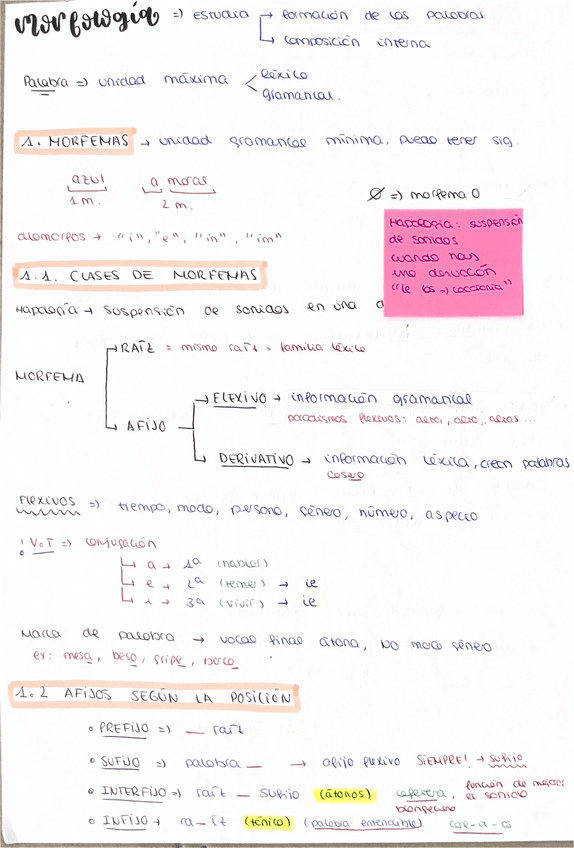 Morfología => estudia → formación de las palabras
↳ composición interna
Palabra => unidad máxima < léxico
gramatical.
1. MORFEMAS → unidad gramatical mínima, puede tener sig.
azul a moras
1 m. 2 m.
∅ => morfema 0
alomorfos → "i", "e", "in", "im"
Haplología: suspensión
de sonidos
cuando hay
una derivación
"le los =>
1.1. CLASES DE MORFEMAS
Haplología → suspensión de sonidos en una d
RAÍZ = misma raíz = familia léxica
MORFEMA
AFIJO → FLEXIVO → información gramatical
paradigmas flexivos:
DERIVATIVO → información léxica, crean palabras
casero
Flexivos => tiempo, modo, persona, género, número, aspecto
! V.T => conjugación
↳ a → 1ª (hablar)
↳ e → 2ª (temer) → ie
↳ i → 3ª (vivir) → ie
Marca de palabra → vocal final átona, NO moco género
ex: mesa, beso, gripe, barco
1.2 AFIJOS SEGÚN LA POSICIÓN
• PREFIJO => __ raíz
• SUFIJO => palabra __ → afijo flexivo SIEMPRE! → sufijo
• INTERFIJO => raíz _ sufijo (átonos) cafetera, función de mejorar
el sonido
• INFIJO → ra_íz (tónico) (palabra entendible)